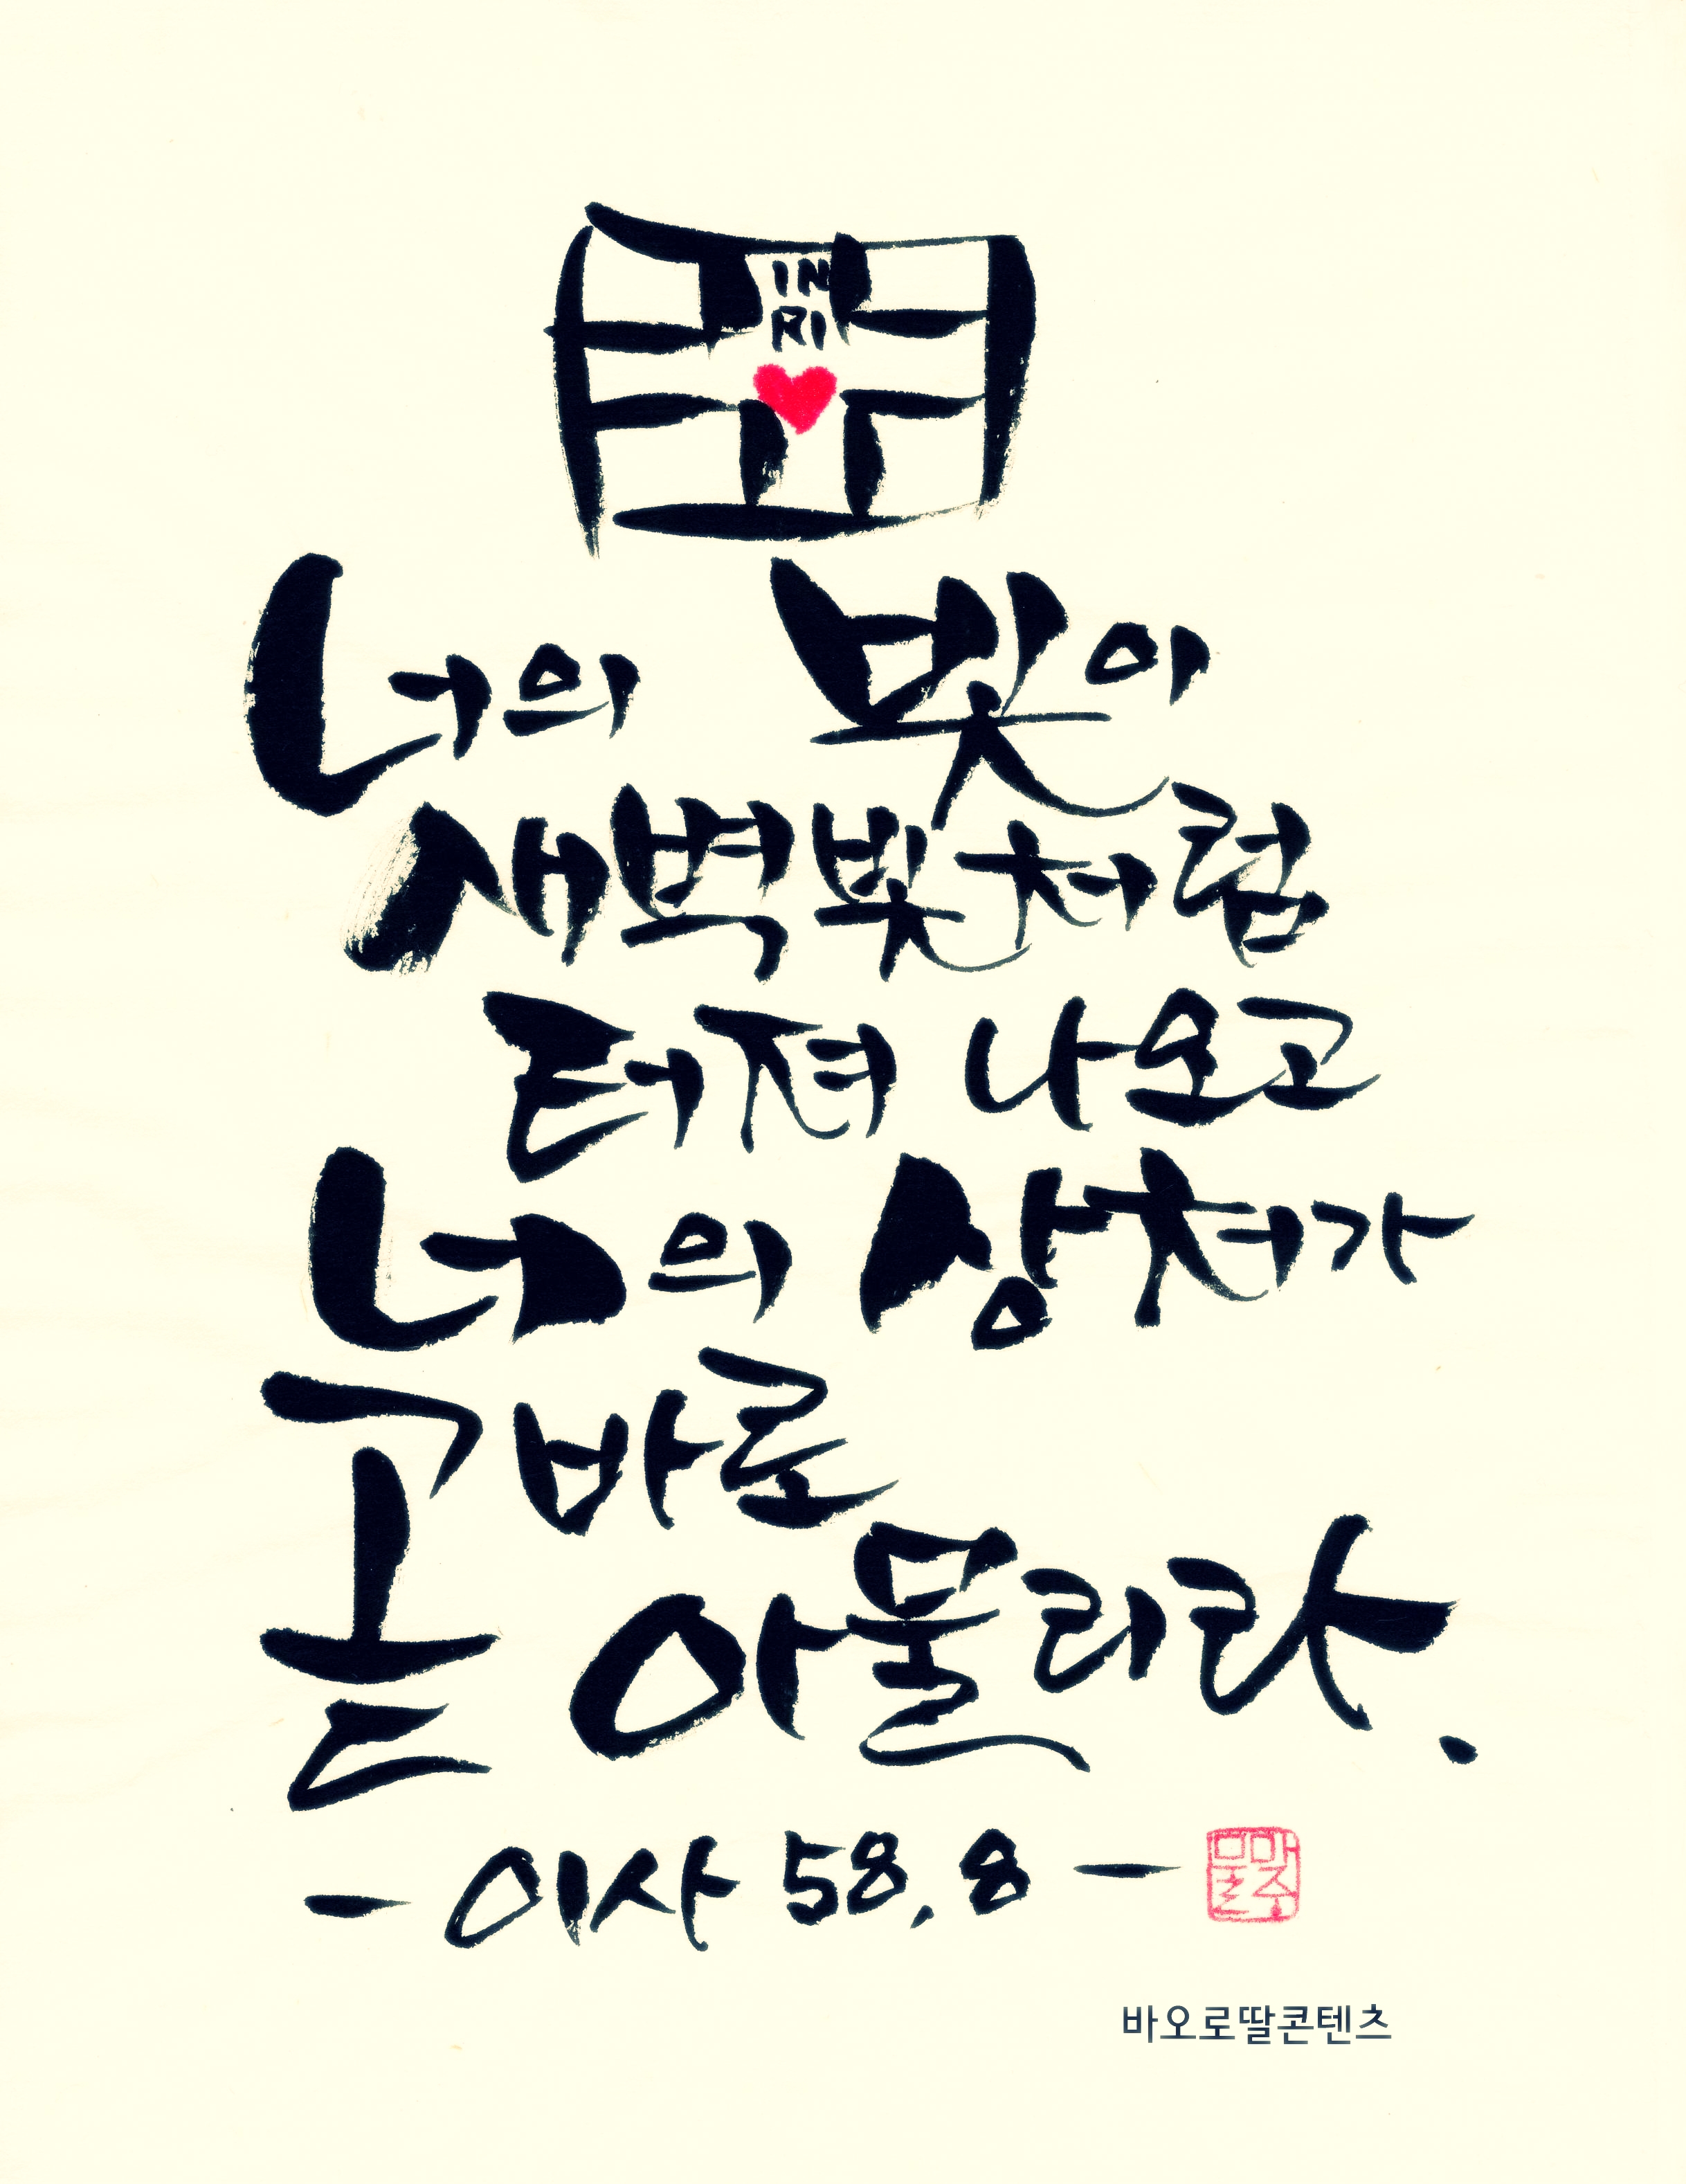 IN
RI
너의 빛이
새벽빛처럼
터져 나오고
너의 상처가
곧바로
아물리라.
- 이사 58,8 -
바오로딸콘텐츠